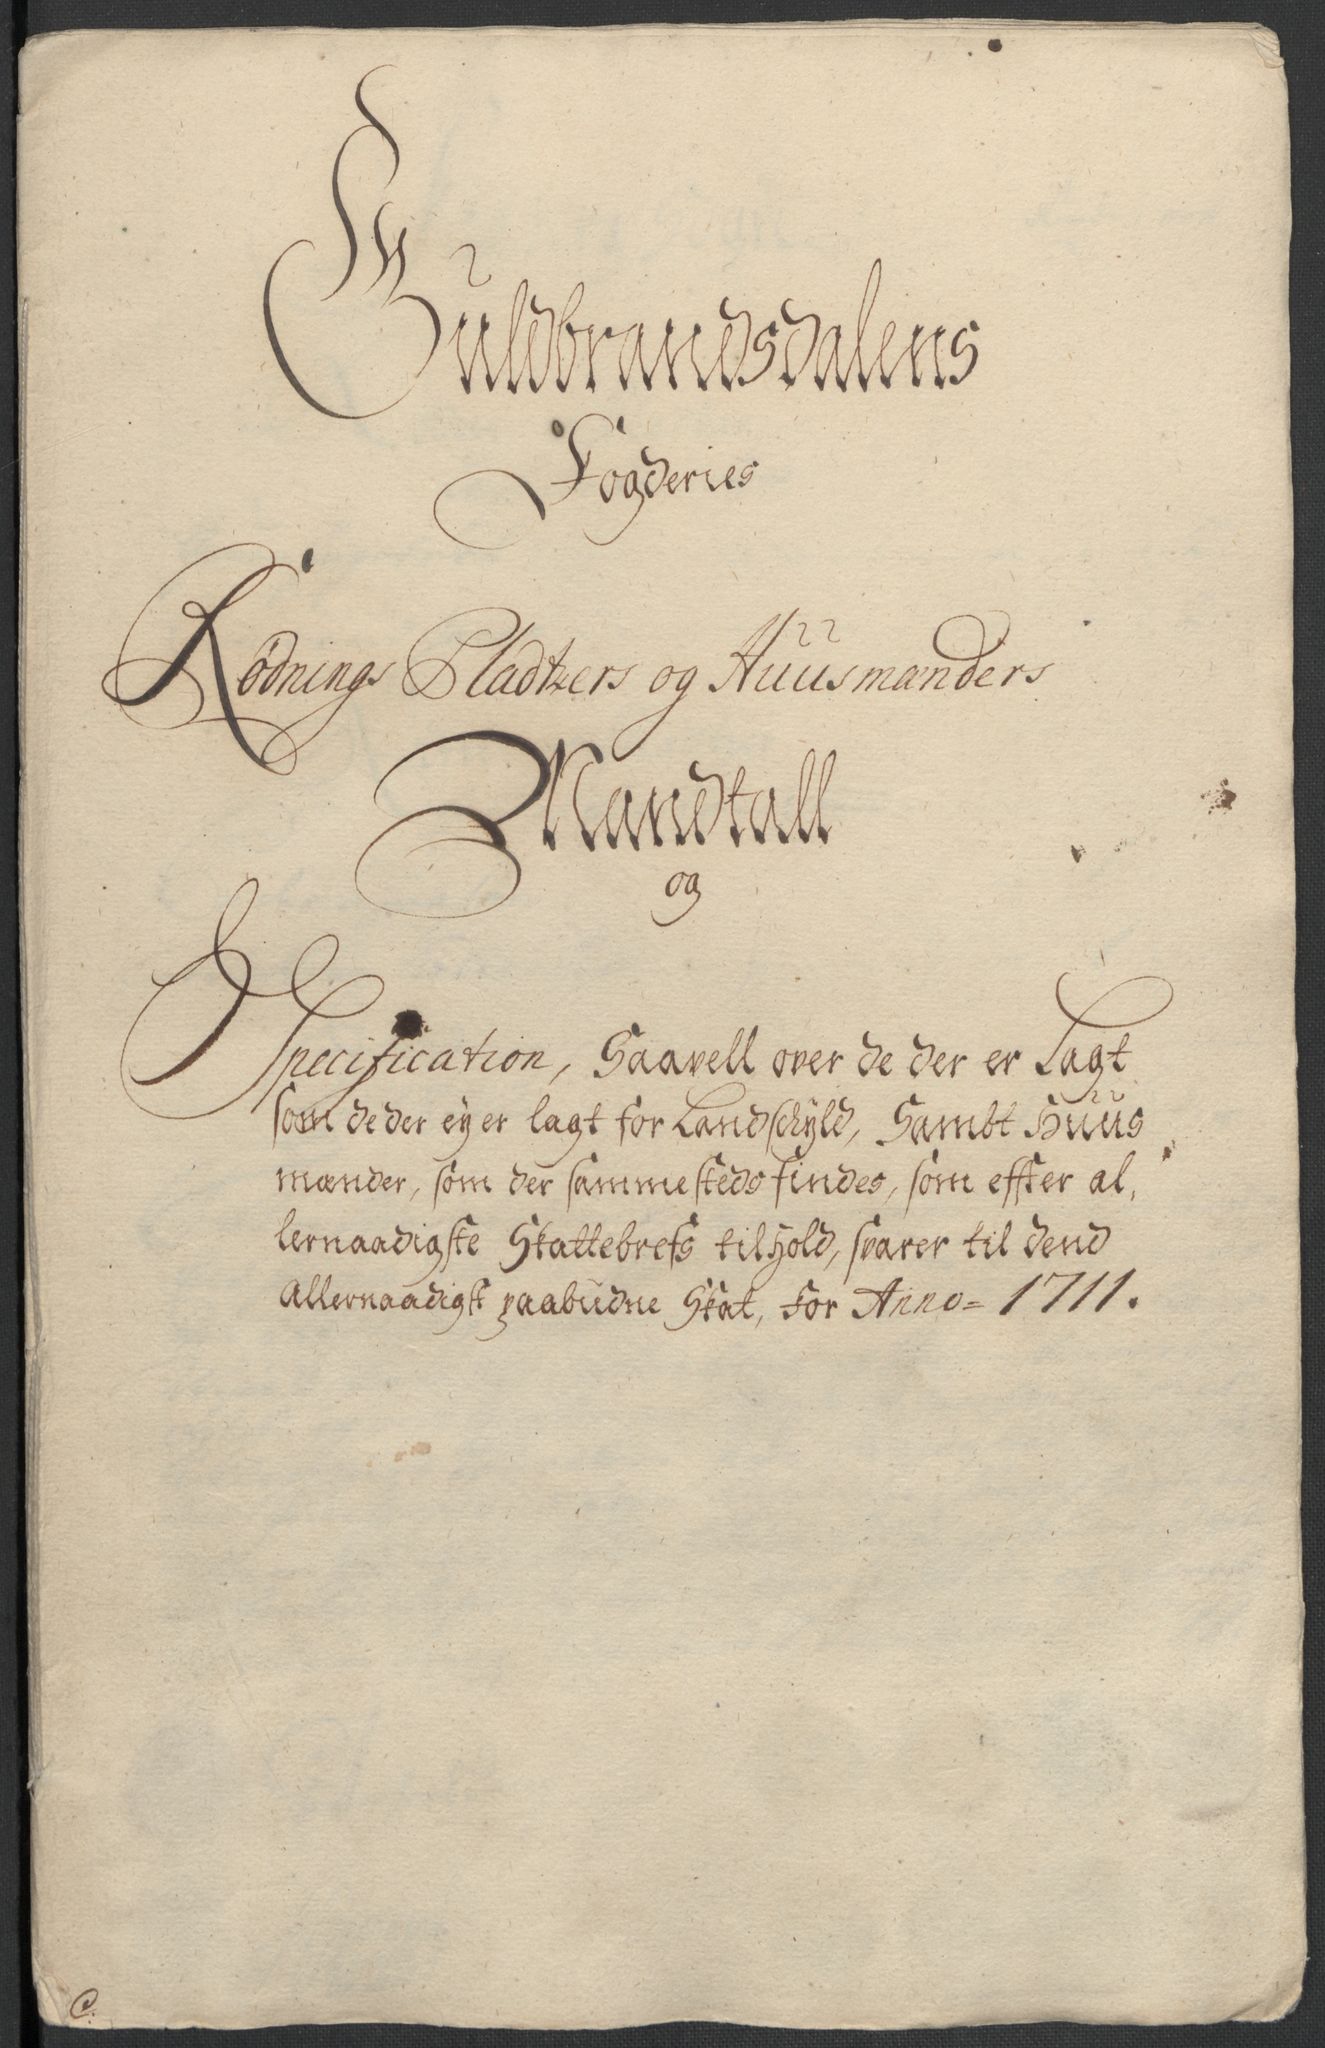 Guldbrandsdalens
Fogderies
Rödnings Pladtzers og Huusmænders
Mandtall
og
Specification, Saavell over de der er Lagt
som de der ey er lagt for Landschyld, Sambt Huus
mænder, som der sammesteds findes, som effter al,
lernaadigste Skattebrefs tilhold, svarer til dend
allernaadigst paabudne Skat, for Anno = 1711.
C.